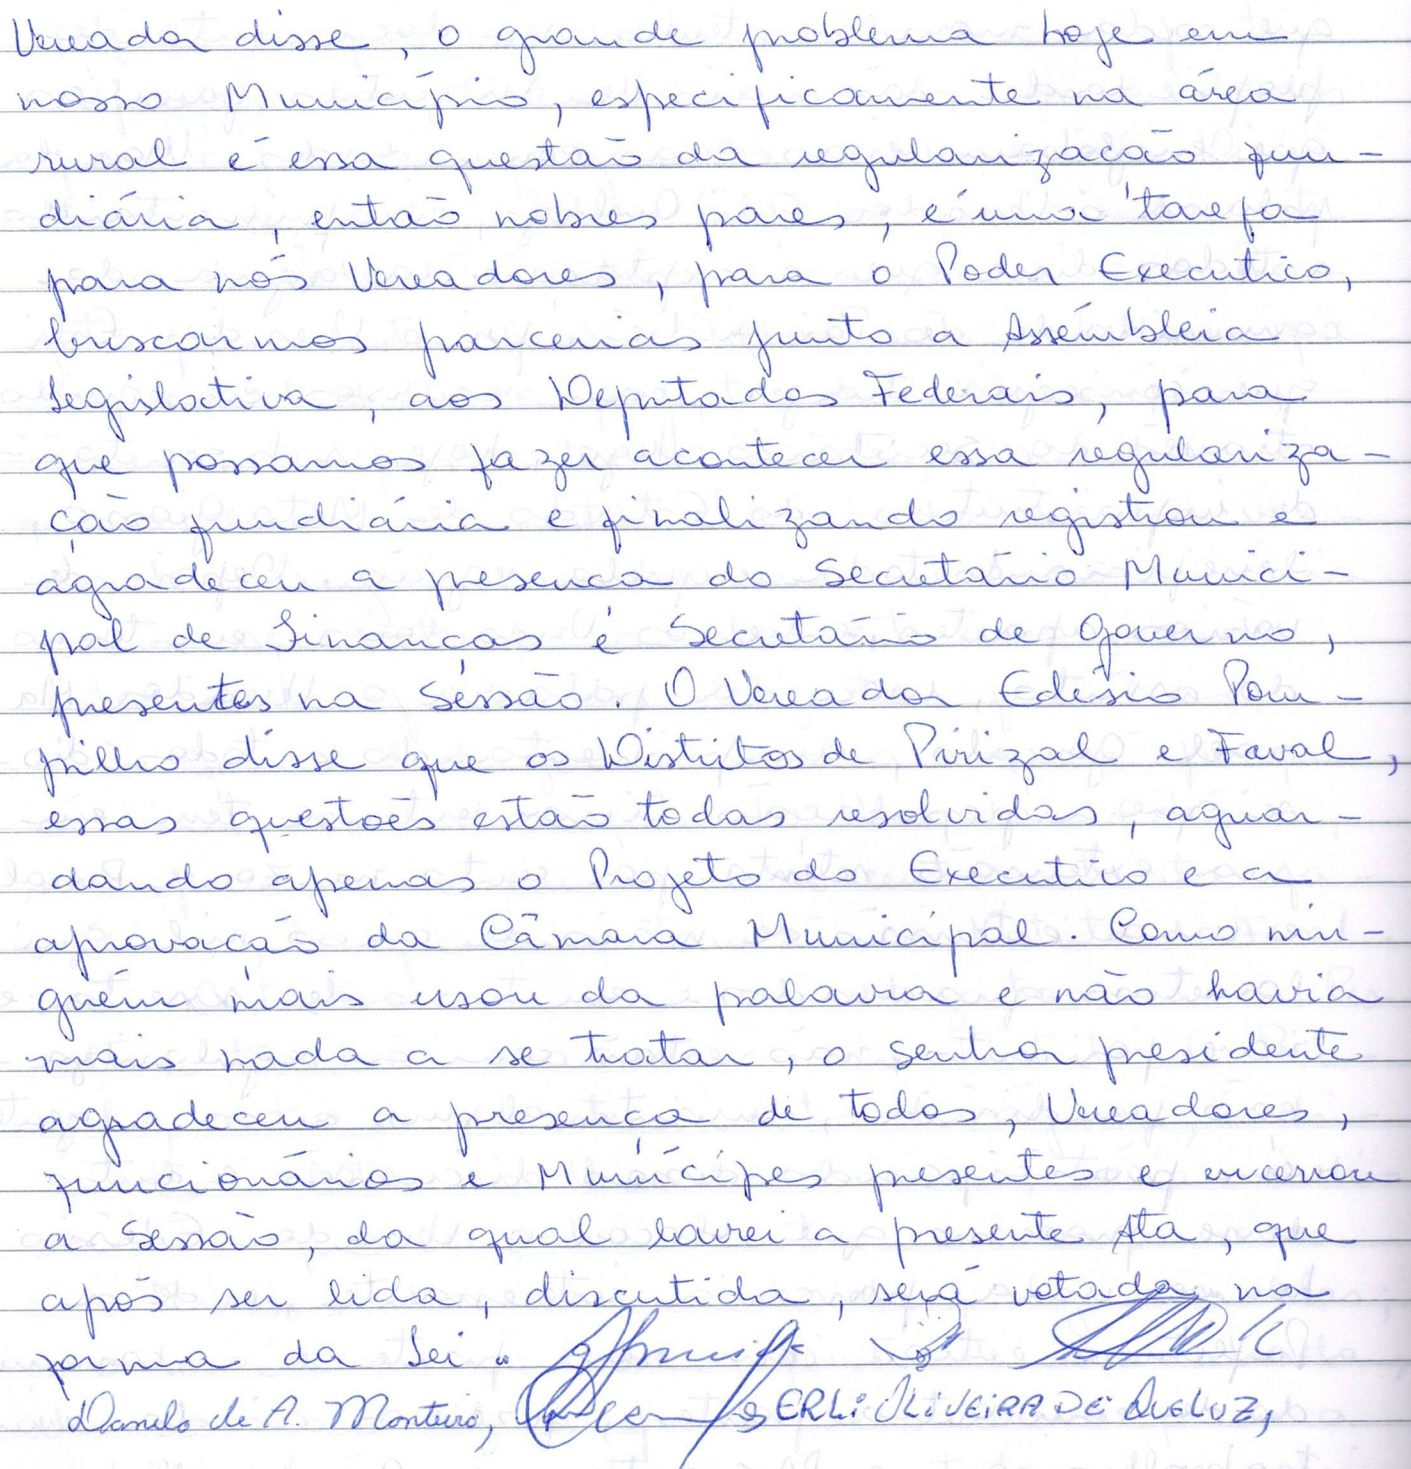 Vereador disse, o grande problema hoje em
nosso Município, especificamente na área
rural é essa questão da regularização fun-
diária, então nobres pares, é uma tarefa
para nós Vereadores, para o Poder Executivo,
buscarmos parcerias junto a Assembleia
Legislativa, aos Deputados Federais, para
que possamos fazer acontecer essa regulariza-
ção fundiária e finalizando registrou e
agradeceu a presença do Secretário Munici-
pal de Finanças e Secretário de Governo,
presentes na Sessão. O Vereador Edésio Pom-
pilho disse que os Distritos de Pirizal e Faval,
essas questões estão todas resolvidas, aguar-
dando apenas o Projeto do Executivo e a
aprovação da Câmara Municipal. Como nin-
guém mais usou da palavra e não havia
mais nada a se tratar, o senhor presidente
agradeceu a presença de todos, Vereadores,
funcionários e Munícipes presentes e encerrou
a Sessão, da qual lavrei a presente Ata, que
após ser lida, discutida, será votada na
forma da Lei.
Danilo de A. Monteiro, ERLi OLiVEiRA DE QUELUZ,